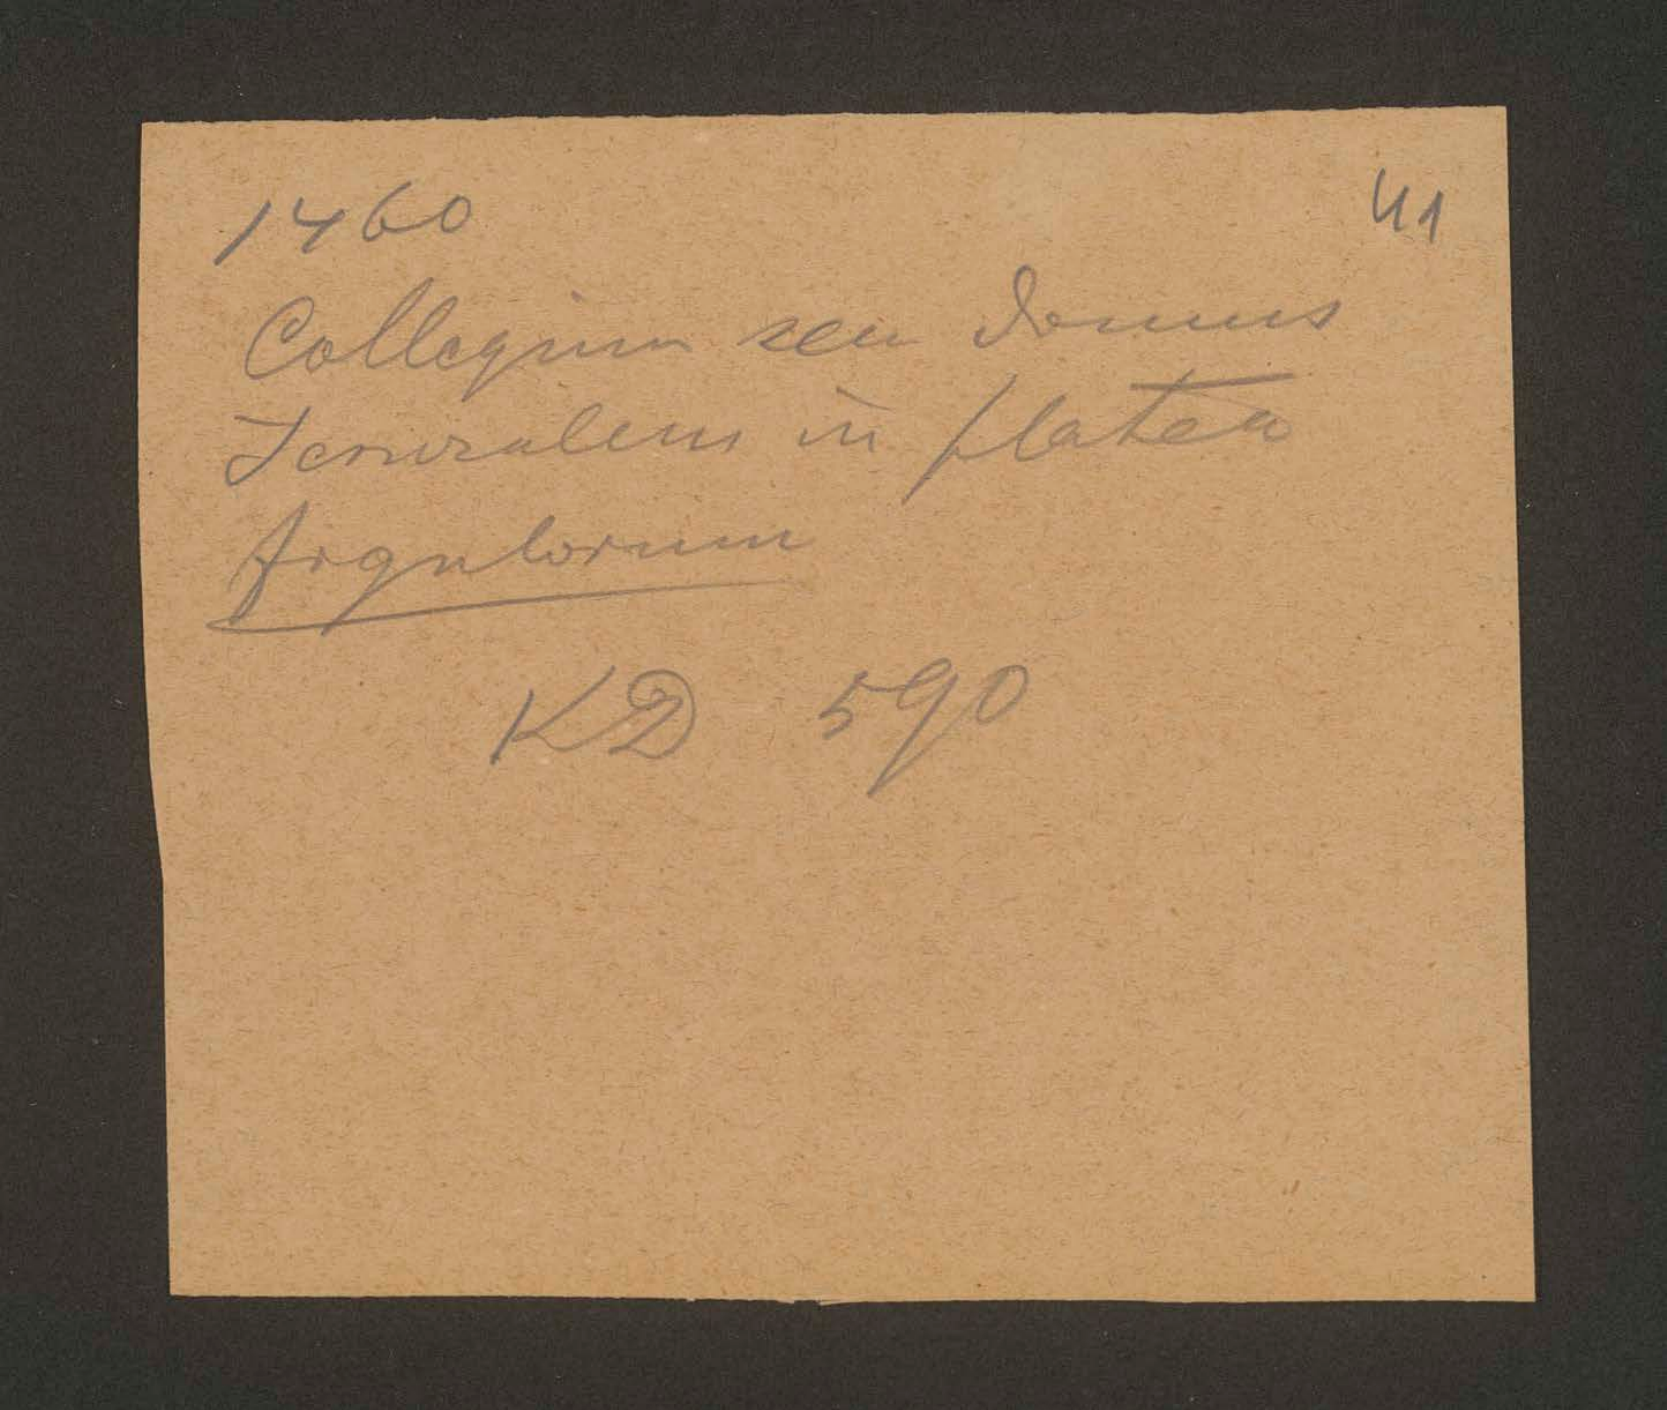 1460
41
Collegium seu domus
Jeruzalem in platea
figulorum
KD 590